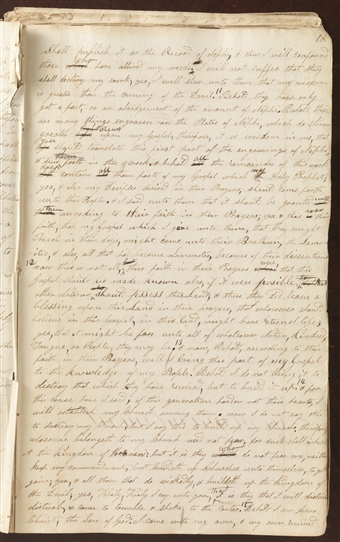 shall publish it as the Record of Nephi, & thus I will confound
those who have altered my words, I will not suffer that they
shall destroy my work; yea, I will shew unto them that my wisdom
is greater than the cunning of the Devil, Behold they have only
got a part, or an abridgement of the account of Nephi, Behold there
are many things engraven on the Plates of Nephi, which do throw
greater views upon my Gospel, therefore, it is wisdom in me, that
ye should translate this first part of the engravings of Nephi,
& send forth in this work & behold all the remainder of this work
contain all those parts of my Gospel which my Holy Prophets,
yea, & also my Deciples desired in their Prayers, should come forth
unto this People, & I said unto them that it should be granted
according to their faith in their Prayers; yea & this
faith, that my Gospel which I gave unto them, that they might
Preach in their days, might come unto their Brethren, the Laman
ites, & also, all that had become Lamanites, because of their dissensions
now this is not all, their faith in their Prayers was that this
Gospel should be made known also, if it were possible that
other nations should possess this Land, & thus they did leave a
blessing upon this Land in their prayers, that whosoever should
believe in this Gospel, in this land, might have eternal life;
yea, that it might be free unto all of whatsoever Nation, Kindred,
Tongue, or People, they may be, now, Behold, according to their
faith in their Prayers, will I bring this part of my Gospel
to the knowledge of my People. Behold I do not bring it to
destroy that which they have received, but to build it up, & for
this cause have I said, if this generation harden not their hearts, I
will establish my church among them, now I do not say this
to destroy my Church, but I say this to build up my Church, therefore
whosoever belongeth to my church need not fear, for such shall inherit
the Kingdom of heaven; but it is they who do not fear me, neither
keep my commandments, but buildeth up churches unto themselves, to get
gain; yea, & all those that do wickedly, & buildeth up the Kingdom of
the Devil; yea, Verily, Verily I say unto you, that it is they that I will
disturb, & cause to tremble & shake to the Center, Behold I am Jesus
Christ, the Son of God, I came unto my own, & my own received